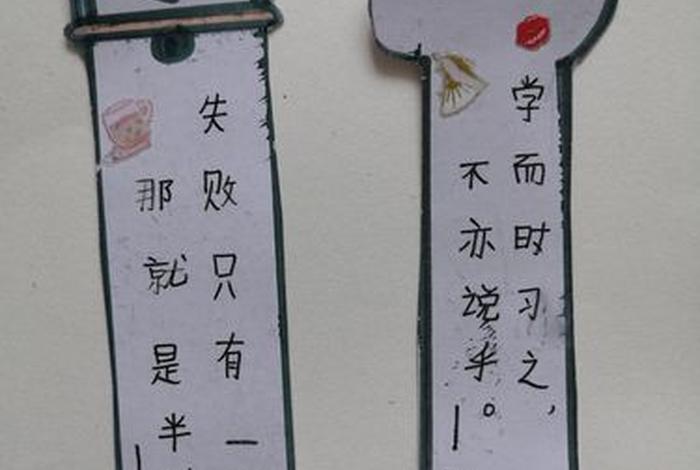 失败只有一
那就是半
学而时习之，
不亦说乎。